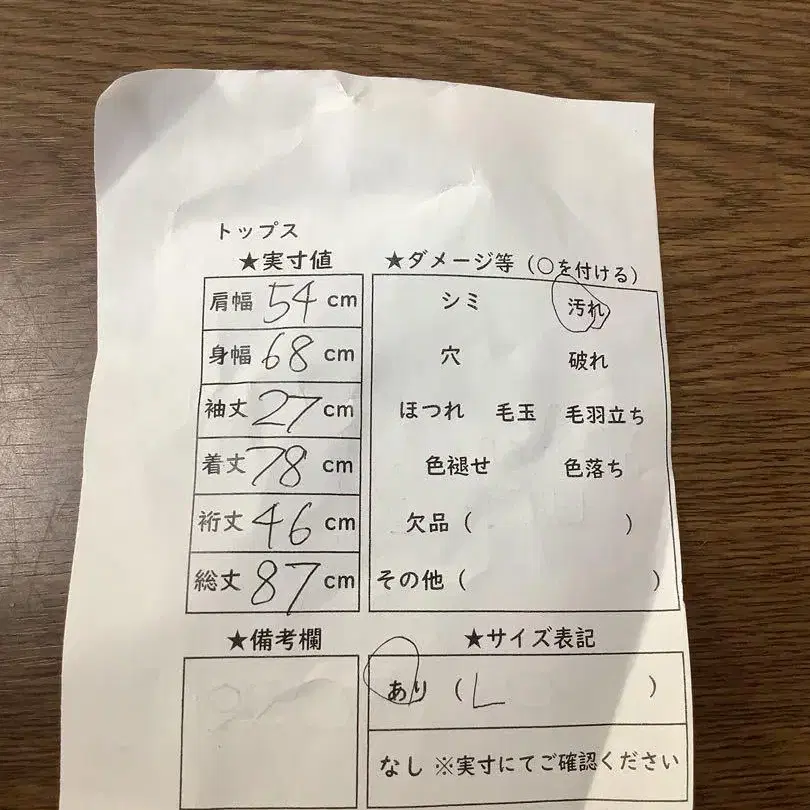 トップス
★実寸値
肩幅 54 cm
身幅 68 cm
袖丈 27 cm
着丈 78 cm
裄丈 46 cm
総丈 87 cm
★ダメージ等（○を付ける）
シミ 汚れ
穴 破れ
ほつれ 毛玉 毛羽立ち
色褪せ 色落ち
欠品（ ）
その他（ ）
★備考欄
★サイズ表記
あり（L ）
なし ※実寸にてご確認ください